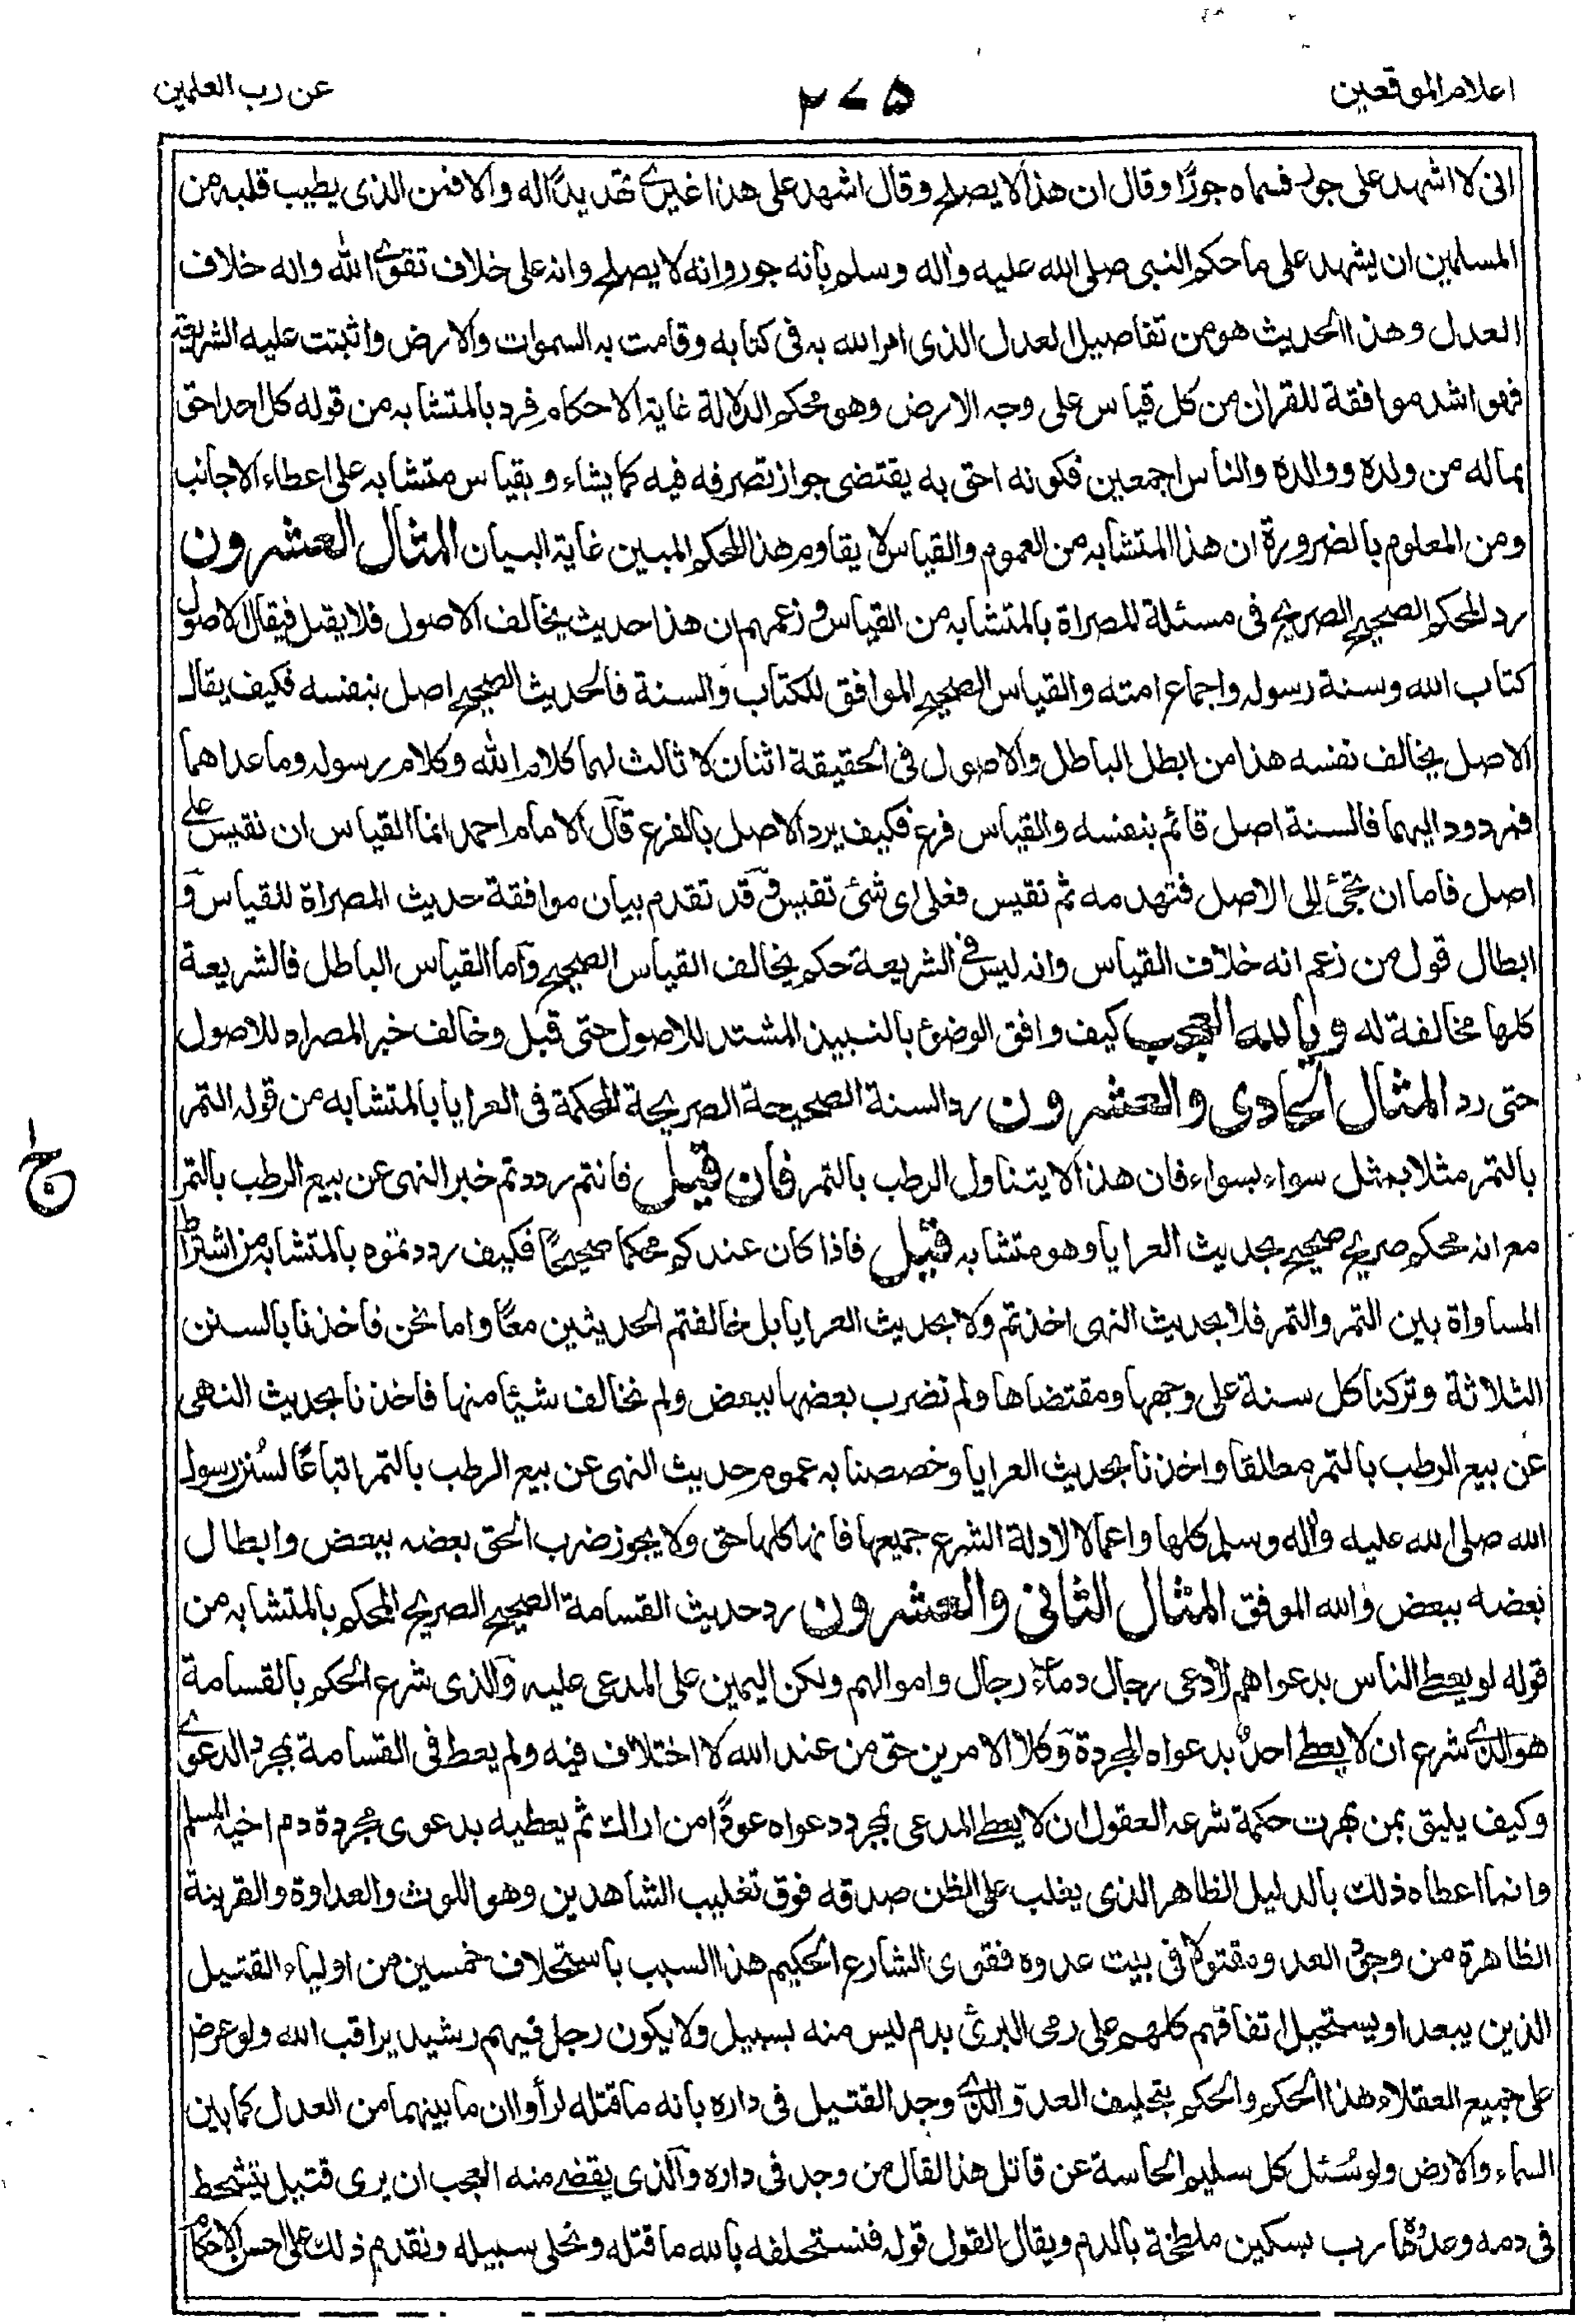 اعلام الموقعين
۲۷۵
عن رب العلمين
انى لا اشهد على جور فسماه جورًا وقال ان هذا لا يصلح وقال اشهد على هذا غيرى تهديدًا له والا فمن الذى يطيب قلبه من
المسلمين ان يشهد على ما حكم النبى صلى الله عليه وآله وسلم بأنه جور وانه لا يصلح وانه على خلاف تقوى الله وانه خلاف
العدل وهذا الحديث هو من تفاصيل العدل الذى امر الله به فى كتابه وقامت به السموات والارض واثبتت عليه الشريعة
فهو اشد موافقة للقرأن من كل قياس على وجه الارض وهو محكم الدلالة غاية الاحكام فرد بالمتشابه من قوله كل احد احق
بماله من ولده ووالده والناس اجمعين فكونه احق به يقتضى جواز تصرفه فيه كما يشاء وبقياس متشابه على اعطاء الاجانب
ومن المعلوم بالضرورة ان هذا المتشابه من العموم والقياس لا يقاوم هذا المحكم المبين غاية البيان المثال العشرون
رد المحكم الصحيح الصريح فى مسئلة المصراة بالمتشابه من القياس وزعمهم ان هذا حديث يخالف الاصول فلا يقبل فيقال الاصول
كتاب الله وسنة رسوله واجماع امته والقياس الصحيح الموافق للكتاب والسنة فالحديث الصحيح اصل بنفسه فكيف يقال
الاصل يخالف نفسه هذا من ابطل الباطل والاصول فى الحقيقة اثنان لا ثالث لهما كلام الله وكلام رسوله وما عداهما
فمردود اليهما فالسنة اصل قائم بنفسه والقياس فرع فكيف يرد الاصل بالفرع قال الامام احمد انما القياس ان نقيس على
اصل فاما ان تجئ الى الاصل فتهدمه ثم نقيس فعلى اى شئ تقيس وقد تقدم بيان موافقة حديث المصراة للقياس و
ابطال قول من زعم انه خلاف القياس وانه ليس فى الشريعة حكم يخالف القياس الصحيح واما القياس الباطل فالشريعة
كلها مخالفة له ويا لله العجب كيف وافق الوضوء بالنبيذ المشتد للاصول حتى قبل وخالف خبر المصراه للاصول
حتى رد المثال الحادى والعشرون رد السنة الصحيحة الصريحة المحكمة فى العرايا بالمتشابه من قوله التمر
بالتمر مثلا بمثل سواء بسواء فان هذا لا يتناول الرطب بالتمر فان قيل فانتم رددتم خبر النهى عن بيع الرطب بالتمر
مع انه محكم صريح صحيح بحديث العرايا وهو متشابه قيل فاذا كان عندكم محكما صحيحًا فكيف رددتموه بالمتشابه من اشتراط
المساواة بين التمر والتمر فلا بحديث النهى اخذتم ولا بحديث العرايا بل خالفتم الحديثين معًا واما نحن فاخذنا بالسنن
الثلاثة وتركنا كل سنة على وجهها ومقتضاها ولم نضرب بعضها ببعض ولم نخالف شيئًا منها فاخذنا بحديث النهى
عن بيع الرطب بالتمر مطلقا واخذنا بحديث العرايا وخصصنا به عموم حديث النهى عن بيع الرطب بالتمر اتباعًا لسُنن رسول
الله صلى الله عليه وآله وسلم كلها واعمالا لادلة الشرع جميعها فانها كلها حق ولا يجوز ضرب الحق بعضه ببعض وابطال
بعضه ببعض والله الموفق المثال الثانى والعشرون رد حديث القسامة الصحيح الصريح المحكم بالمتشابه من
قوله لو يعطى الناس بدعواهم لادعى رجال دماء رجال واموالهم ولكن اليمين على المدعى عليه والذى شرع الحكم بالقسامة
هو الذى شرع ان لا يعطى احدٌ بدعواه المجردة وكلا الامرين حق من عند الله لا اختلاف فيه ولم يعط فى القسامة بمجرد الدعوى
وكيف يليق بمن بهرت حكمة شرعه العقول ان لا يعطى المدعى بمجرد دعواه عودًا من اراك ثم يعطيه بدعوى مجردة دم اخيه المسلم
وانما اعطاه ذلك بالدليل الظاهر الذى يغلب على الظن صدقه فوق تغليب الشاهدين وهو اللوث والعداوة والقرينة
الظاهرة من وجود العدو مقتولا فى بيت عدوه فقوى الشارع الحكيم هذا السبب باستحلاف خمسين من اولياء القتيل
الذين يبعد او يستحيل اتفاقهم كلهم على رمى البرئ بدم ليس منه بسبيل ولا يكون رجل فيهم رشيد يراقب الله ولو عرض
على جميع العقلاء هذا الحكم والحكم بتحليف العدو الذى وجد القتيل فى داره بانه ما قتله لرأوا ان ما بينهما من العدل كما بين
السماء والارض ولو سُئل كل سليم الحاسة عن قاتل هذا لقال من وجد فى داره والذى يقضى منه العجب ان يرى قتيل يتشحط
فى دمه وعدوُّه هارب بسكين ملطخة بالدم ويقال القول قوله فنستحلفه بالله ما قتله ونخلى سبيله ونقدم ذلك على احسن الاحكام